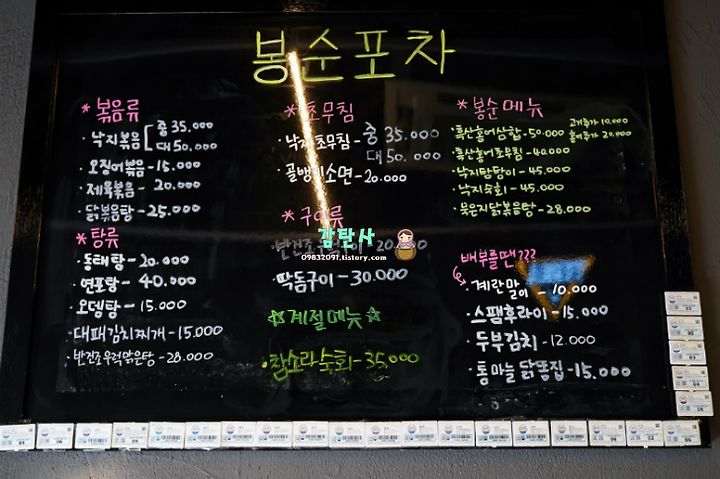 봉순포차
*볶음류
·낙지볶음 [중 35.000
대 50.000
·오징어볶음 - 15.000
·제육볶음 - 20.000
·닭볶음탕 - 25.000
*탕류
·동태탕 - 20.000
·연포탕 - 40.000
·오뎅탕 - 15.000
·대패김치찌개 - 15.000
·반건조우럭맑은탕 - 28.000
*초무침
·낙지초무침 - 중 35.000
대 50.000
·골뱅이소면 - 20.000
*구이류
반건조 20.000
·딱돔구이 - 30.000
☆계절메뉴☆
·참소라숙회 - 35.000
*봉순메뉴
·흑산홍어삼합 - 50.000
고기추가 10.000
홍어추가 20.000
·흑산홍어초무침 - 40.000
·낙지탕탕이 - 45.000
·낙지숙회 - 45.000
·묵은지닭볶음탕 - 28.000
배부를땐???
·계란말이 - 10.000
·스팸후라이 - 15.000
·두부김치 - 12.000
·통마늘 닭똥집 - 15.000
감탄사
09832091.tistory.com